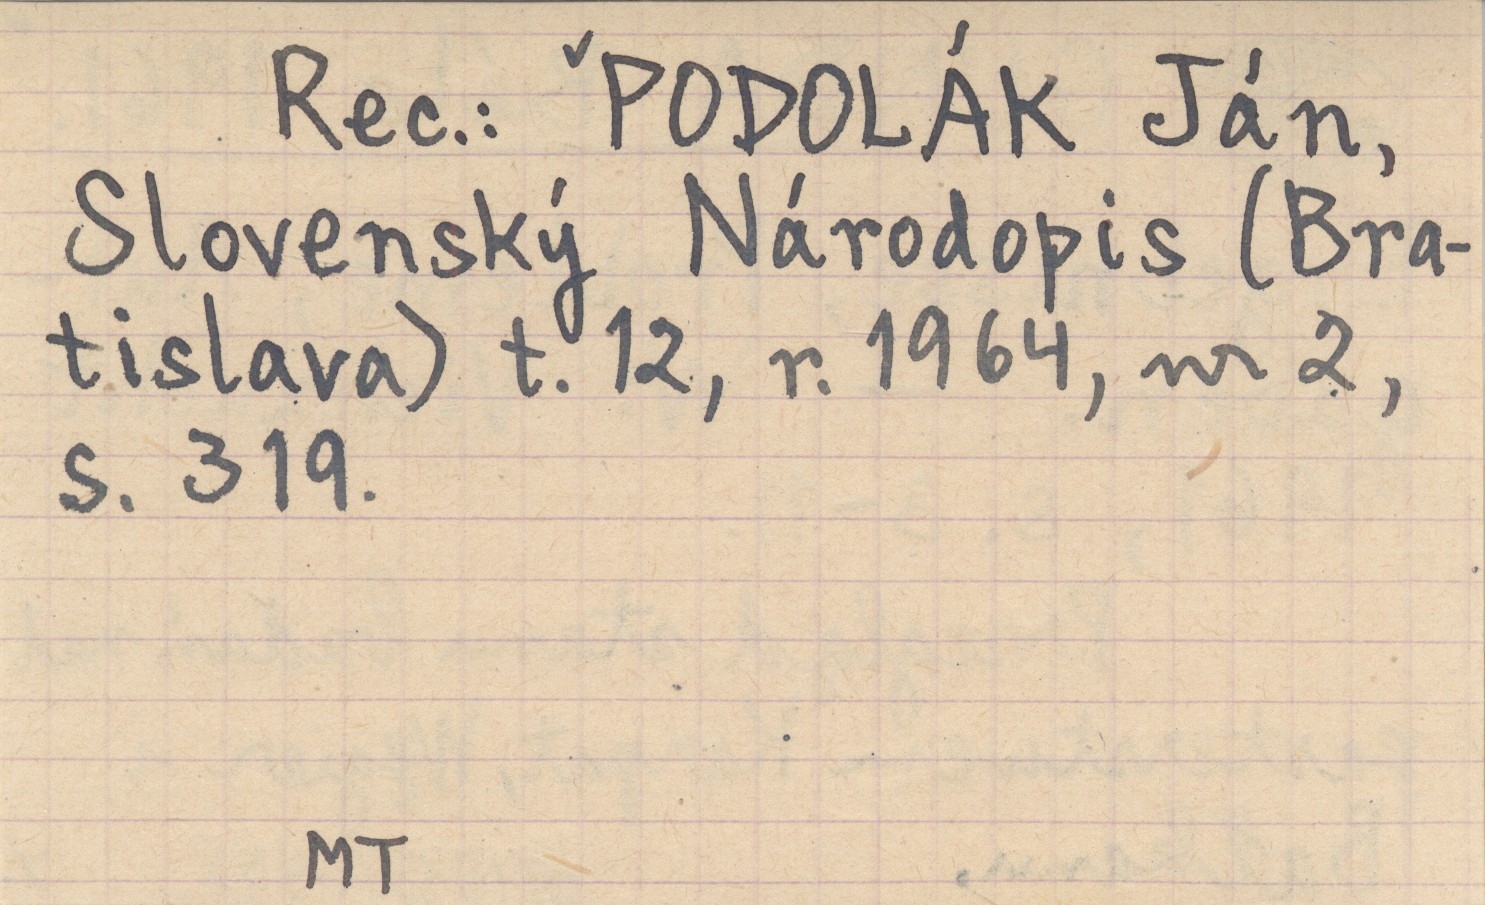 Rec.: ˇPODOLÁK Ján,
Slovenský Národopis (Bra-
tislava) t. 12, r. 1964, nr 2,
s. 319.
MT